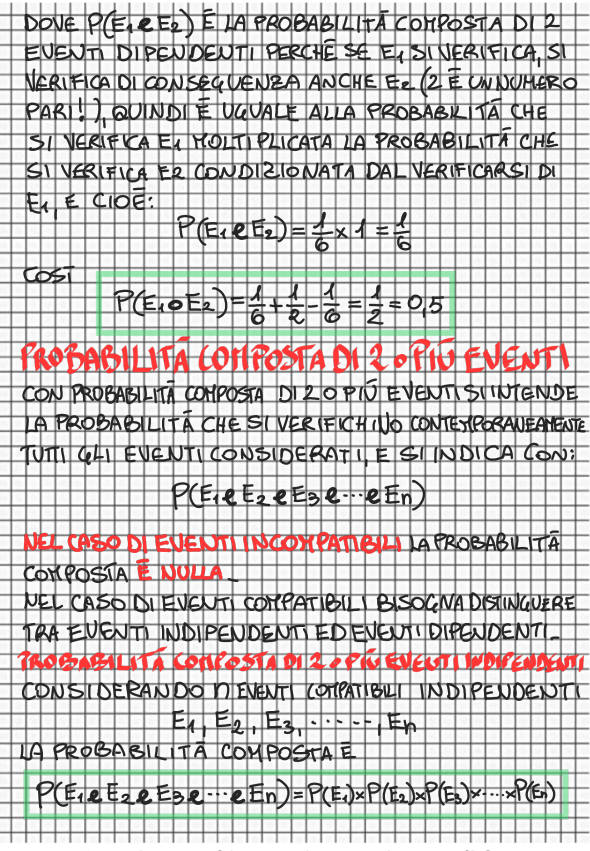 DOVE P(E₁ e E₂) È LA PROBABILITÀ COMPOSTA DI 2
EVENTI DIPENDENTI PERCHÈ SE E₁ SI VERIFICA, SI
VERIFICA DI CONSEGUENZA ANCHE E₂ (2 È UN NUMERO
PARI!), QUINDI È UGUALE ALLA PROBABILITÀ CHE
SI VERIFICA E₁ MOLTIPLICATA LA PROBABILITÀ CHE
SI VERIFICA E2 CONDIZIONATA DAL VERIFICARSI DI
E₁, E CIOÈ:
P(E₁ e E₂) = 1/6 × 1 = 1/6
COSÌ
P(E₁ o E₂) = 1/6 + 1/2 - 1/6 = 1/2 = 0,5
PROBABILITÀ COMPOSTA DI 2 o PIÙ EVENTI
CON PROBABILITÀ COMPOSTA DI 2 O PIÙ EVENTI SI INTENDE
LA PROBABILITÀ CHE SI VERIFICHINO CONTEMPORANEAMENTE
TUTTI GLI EVENTI CONSIDERATI, E SI INDICA CON:
P(E₁ e E₂ e E₃ e ... e En)
NEL CASO DI EVENTI INCOMPATIBILI LA PROBABILITÀ
COMPOSTA È NULLA_
NEL CASO DI EVENTI COMPATIBILI BISOGNA DISTINGUERE
TRA EVENTI INDIPENDENTI ED EVENTI DIPENDENTI_
PROBABILITÀ COMPOSTA DI 2 o PIÙ EVENTI INDIPENDENTI
CONSIDERANDO n EVENTI COMPATIBILI INDIPENDENTI
E₁, E₂, E₃, ......, En
LA PROBABILITÀ COMPOSTA È
P(E₁ e E₂ e E₃ e ... e En) = P(E₁)×P(E₂)×P(E₃)×....×P(En)